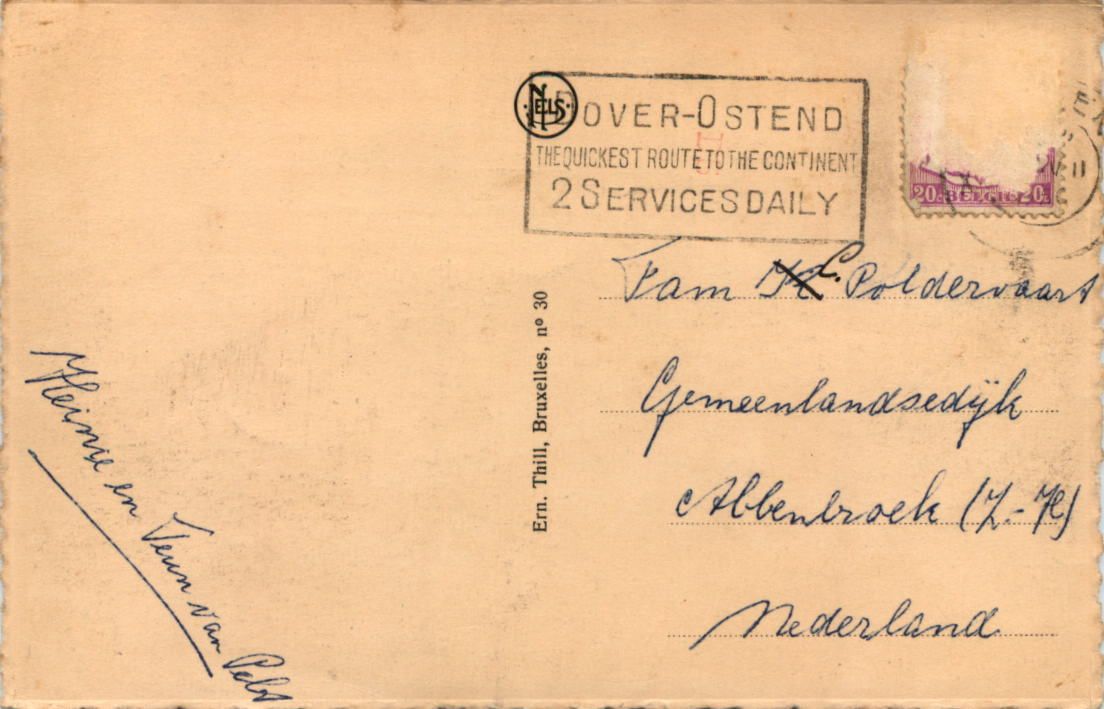 NELS
DOVER-OSTEND
THE QUICKEST ROUTE TO THE CONTINENT
2 SERVICES DAILY
20c 20c
Fam C. Poldervaart
Gemeenlandsedijk
Abbenbroek (Z.-H)
Nederland
Ern. Thill, Bruxelles, nº 30
Heinie en Teun van Pelt